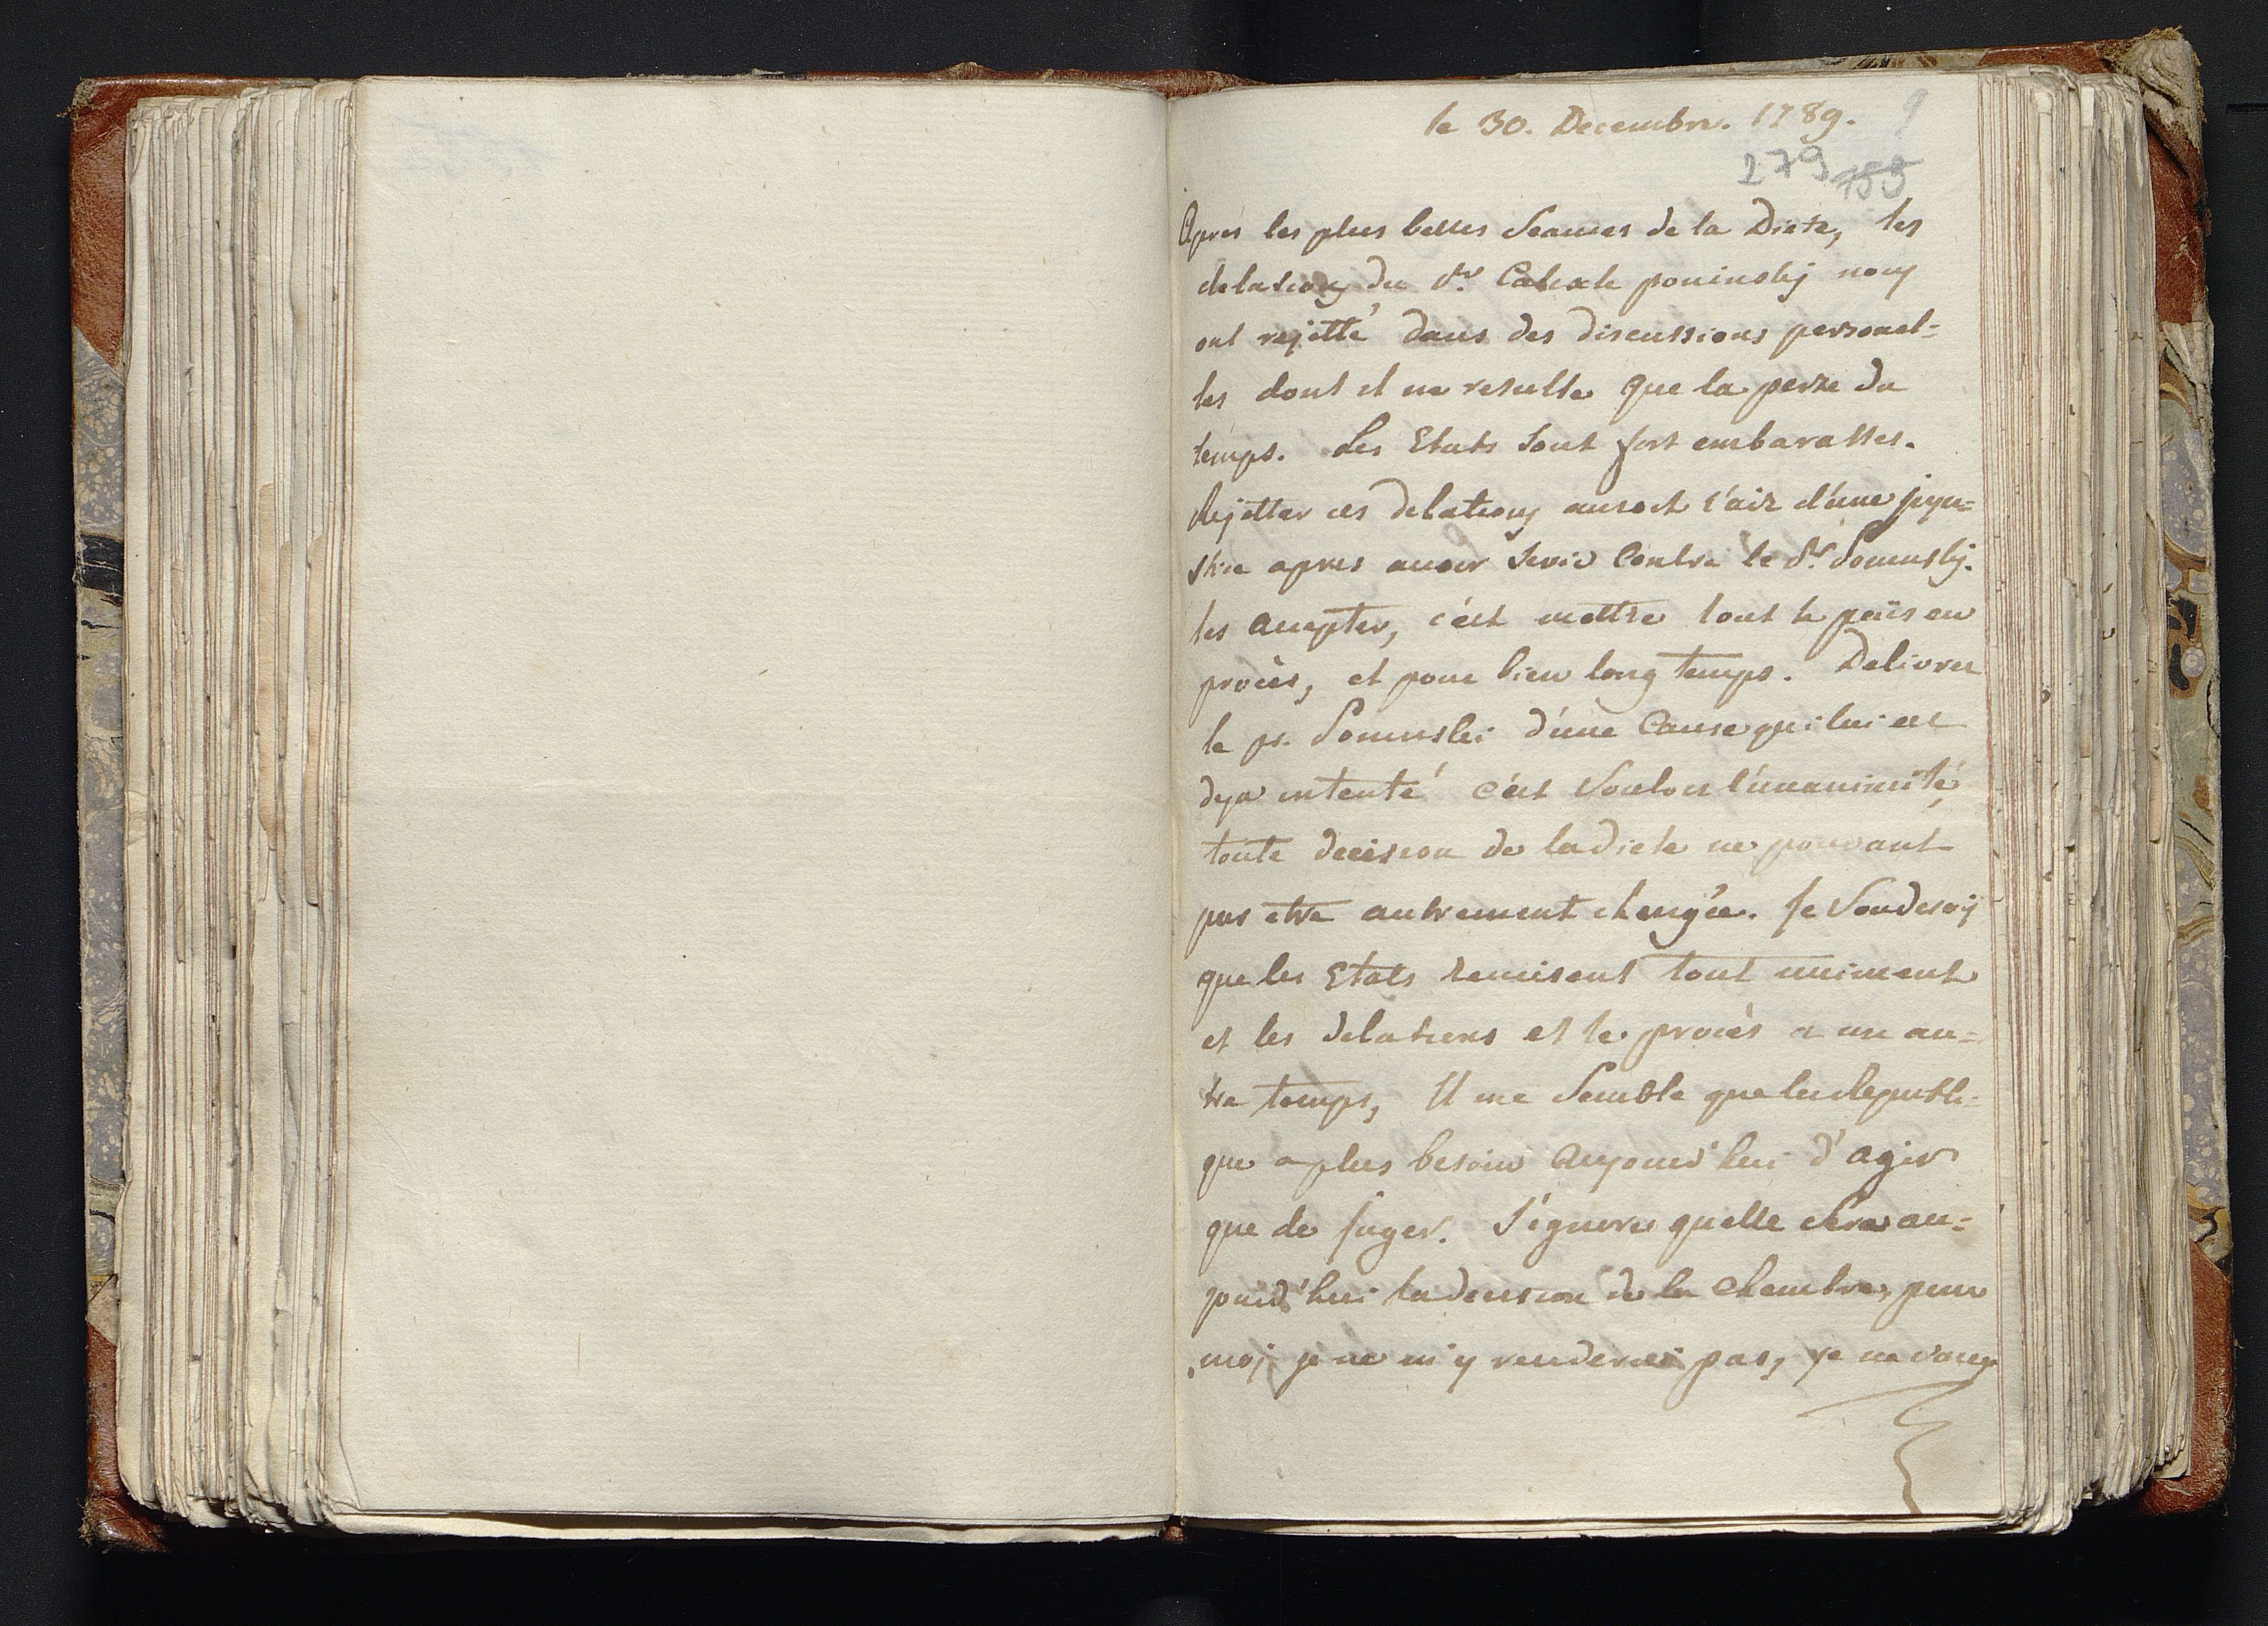 le 30. Decembre. 1789. 9
279 159
Apres les plus belles Seances de la Diete, les
delations du Sr. Calixte poninskj nous
ont rejetté dans des discussions personel=
les dont il ne resulte que la perte du
temps. Les Etats sont fort embarasses.
Rejetter ces delations auroit l'air d'une inju=
stice apres avoir sevic Contre le Sr. Poninskj.
les accepter, c'est mettre tout le païs en
procès, et pour bien long temps. Delivrer
le pr. Poninski d'une Cause qui lui est
deja intenté c'est vouloir l'unanimité,
toute decision de la Diete ne pouvant
pas etre autrement changée. Je Vouderoij
que les Etats remisent tout uniment
et les delations et le procès a un au=
tre temps, Il me Semble que la Republi=
que a plus besoin aujourd'hui d'agir
que de juger. J'ignore quelle sera au=
jourd'hui la decision de la Chambre, pour
moj je ne m'y renderai pas, je ne